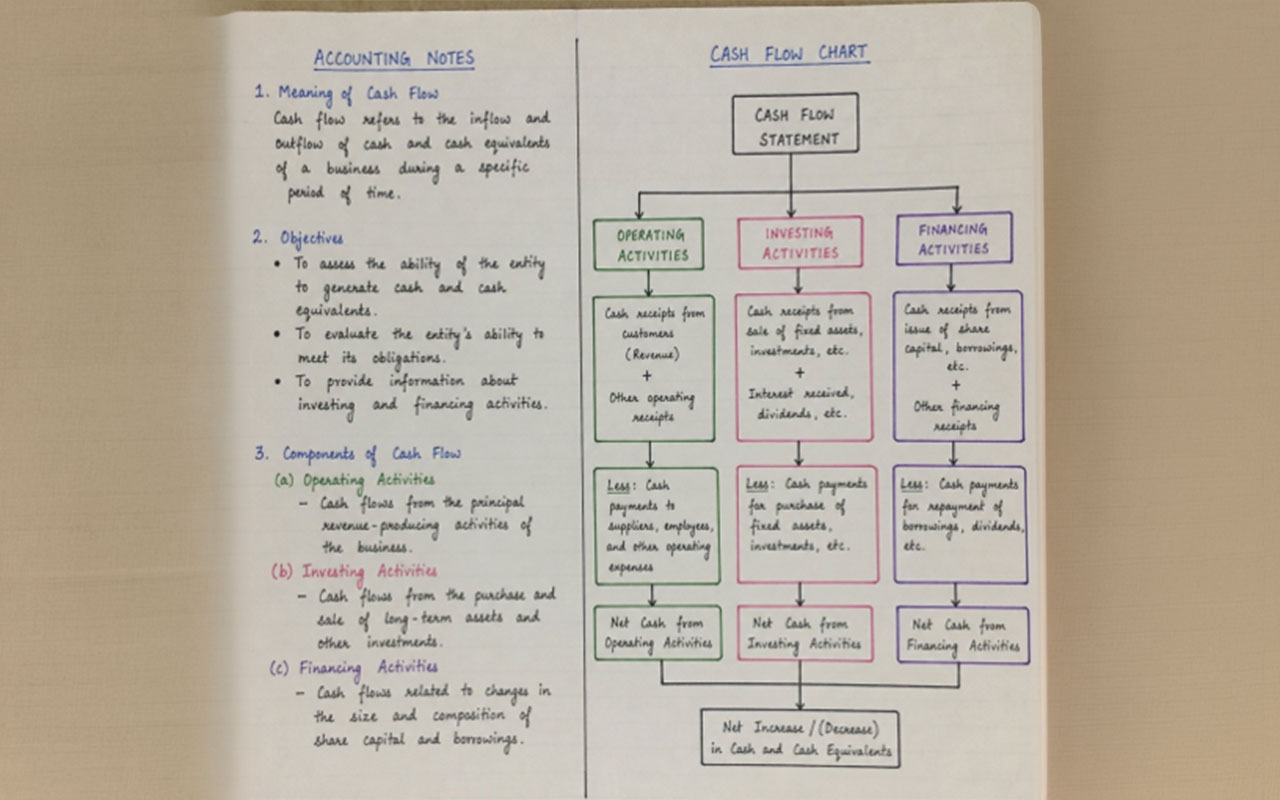 ACCOUNTING NOTES
1. Meaning of Cash Flow
Cash flow refers to the inflow and
outflow of cash and cash equivalents
of a business during a specific
period of time.
2. Objectives
• To assess the ability of the entity
to generate cash and cash
equivalents.
• To evaluate the entity's ability to
meet its obligations.
• To provide information about
investing and financing activities.
3. Components of Cash Flow
(a) Operating Activities
– Cash flows from the principal
revenue-producing activities of
the business.
(b) Investing Activities
– Cash flows from the purchase and
sale of long-term assets and
other investments.
(c) Financing Activities
– Cash flows related to changes in
the size and composition of
share capital and borrowings.
CASH FLOW CHART
CASH FLOW
STATEMENT
OPERATING
ACTIVITIES
Cash receipts from
customers
(Revenue)
+
Other operating
receipts
Less: Cash
payments to
suppliers, employees,
and other operating
expenses
Net Cash from
Operating Activities
INVESTING
ACTIVITIES
Cash receipts from
sale of fixed assets,
investments, etc.
+
Interest received,
dividends, etc.
Less: Cash payments
for purchase of
fixed assets,
investments, etc.
Net Cash from
Investing Activities
FINANCING
ACTIVITIES
Cash receipts from
issue of share
capital, borrowings,
etc.
+
Other financing
receipts
Less: Cash payments
for repayment of
borrowings, dividends,
etc.
Net Cash from
Financing Activities
Net Increase / (Decrease)
in Cash and Cash Equivalents